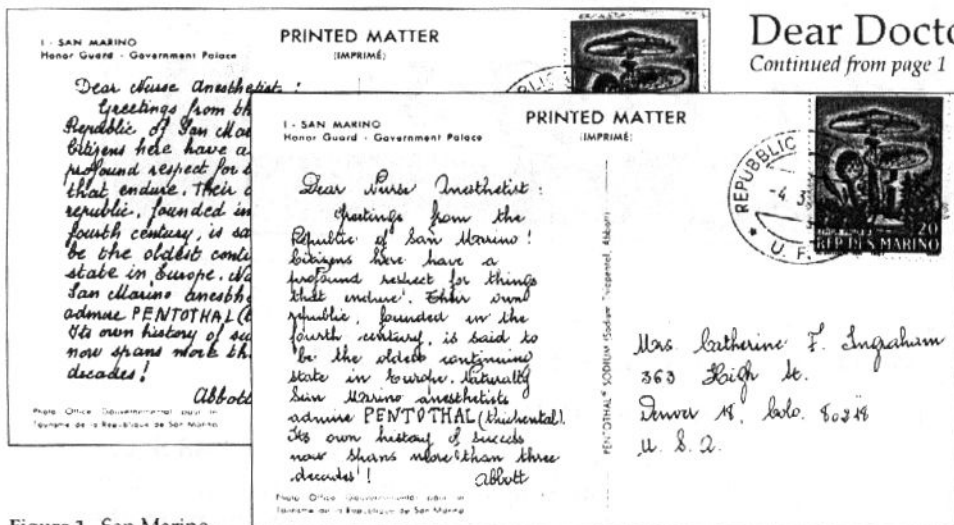 Dear Docto
Continued from page 1
I - SAN MARINO
Honor Guard - Government Palace
PRINTED MATTER
(IMPRIMÉ)
Dear Nurse Anesthetist:
Greetings from th
Republic of San Mar
Citizens here have a
profound respect for t
that endure. Their o
republic, founded in
fourth century, is sa
be the oldest conti
state in Europe. Na
San Marino anesth
admire PENTOTHAL (t
Its own history of suc
now spans more th
decades!
Abbott
Photo Office Gouvernemental pour le
Tourisme de la Republique de San Marino
I - SAN MARINO
Honor Guard - Government Palace
PRINTED MATTER
(IMPRIMÉ)
Dear Nurse Anesthetist:
Greetings from the
Republic of San Marino!
Citizens here have a
profound respect for things
that endure. Their own
republic, founded in the
fourth century, is said to
be the oldest continuing
state in Europe. Naturally
San Marino anesthetists
admire PENTOTHAL (thiopental).
Its own history of success
now spans more than three
decades!
Abbott
Photo Office Gouvernemental pour le
Tourisme de la Republique de San Marino
PENTOTHAL® SODIUM (Sodium Thiopental, Abbott)
REPUBBLIC
-4. 3
U. F.
20
REP. DI S. MARINO
Mrs Catherine F. Ingraham
363 High St.
Denver 18, Colo. 80218
U. S. A.
Figure 1. San Marino